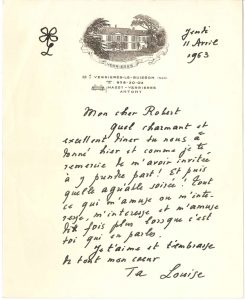 Jeudi
11 Avril
1963
VERRIERES
VERRIERES-LE-BUISSON
MASSY-VERRIERES
ANTONY
Mon cher Robert
Quel charmant et
excellent diner tu nous a
donné hier et comme je te
remercie de m'avoir invitée
à y prendre part! Et puis
quelle agréable soirée! Tout
ce qui m'amuse ou m'inté-
resse, m'intéresse et m'amuse
dix fois plus lorsque c'est
toi qui en parles.
Je t'aime et t'embrasse
de tout mon coeur
Ta Louise